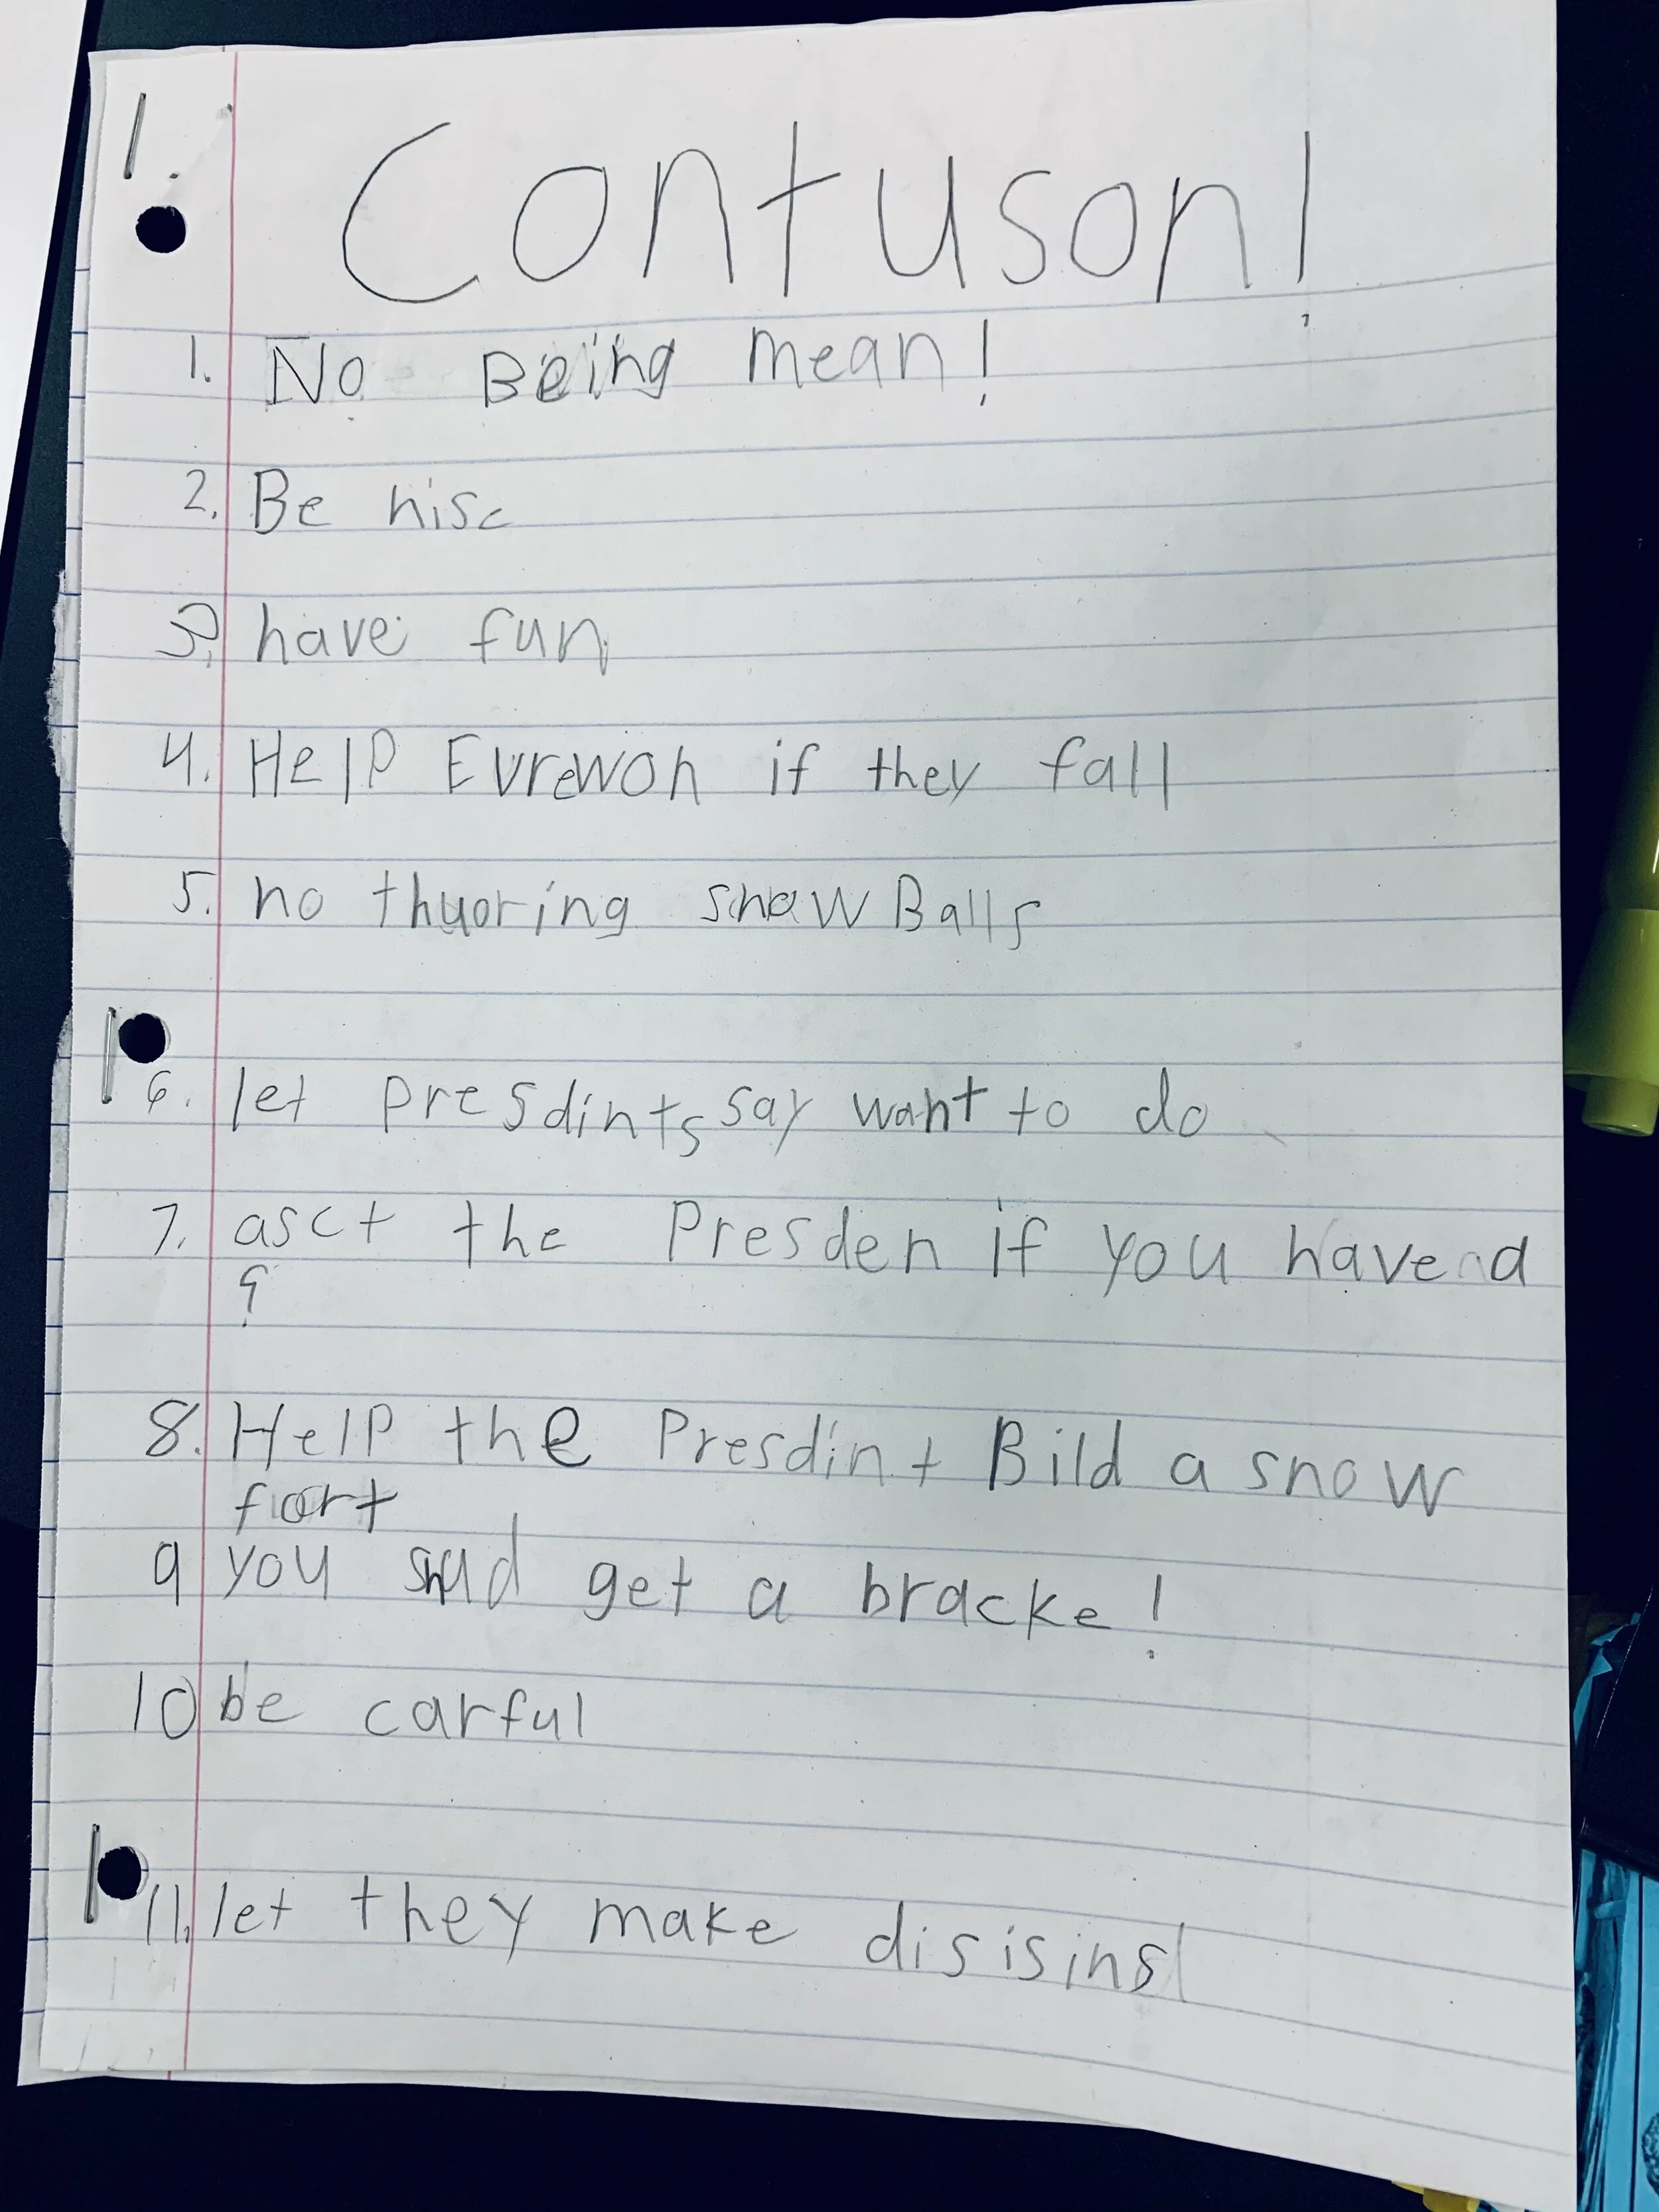 1.
Contuson!
1. No Being mean!
2. Be nise
3. have fun
4. Help Evrewon if they fall
5. no thuoring snow Balls
6. let presdints say want to do
7. asct the Presden if you have a
?
8. Help the Presdint Bild a snow
fort
9 you shud get a bracke!
10 be carful
11. let they make disisins